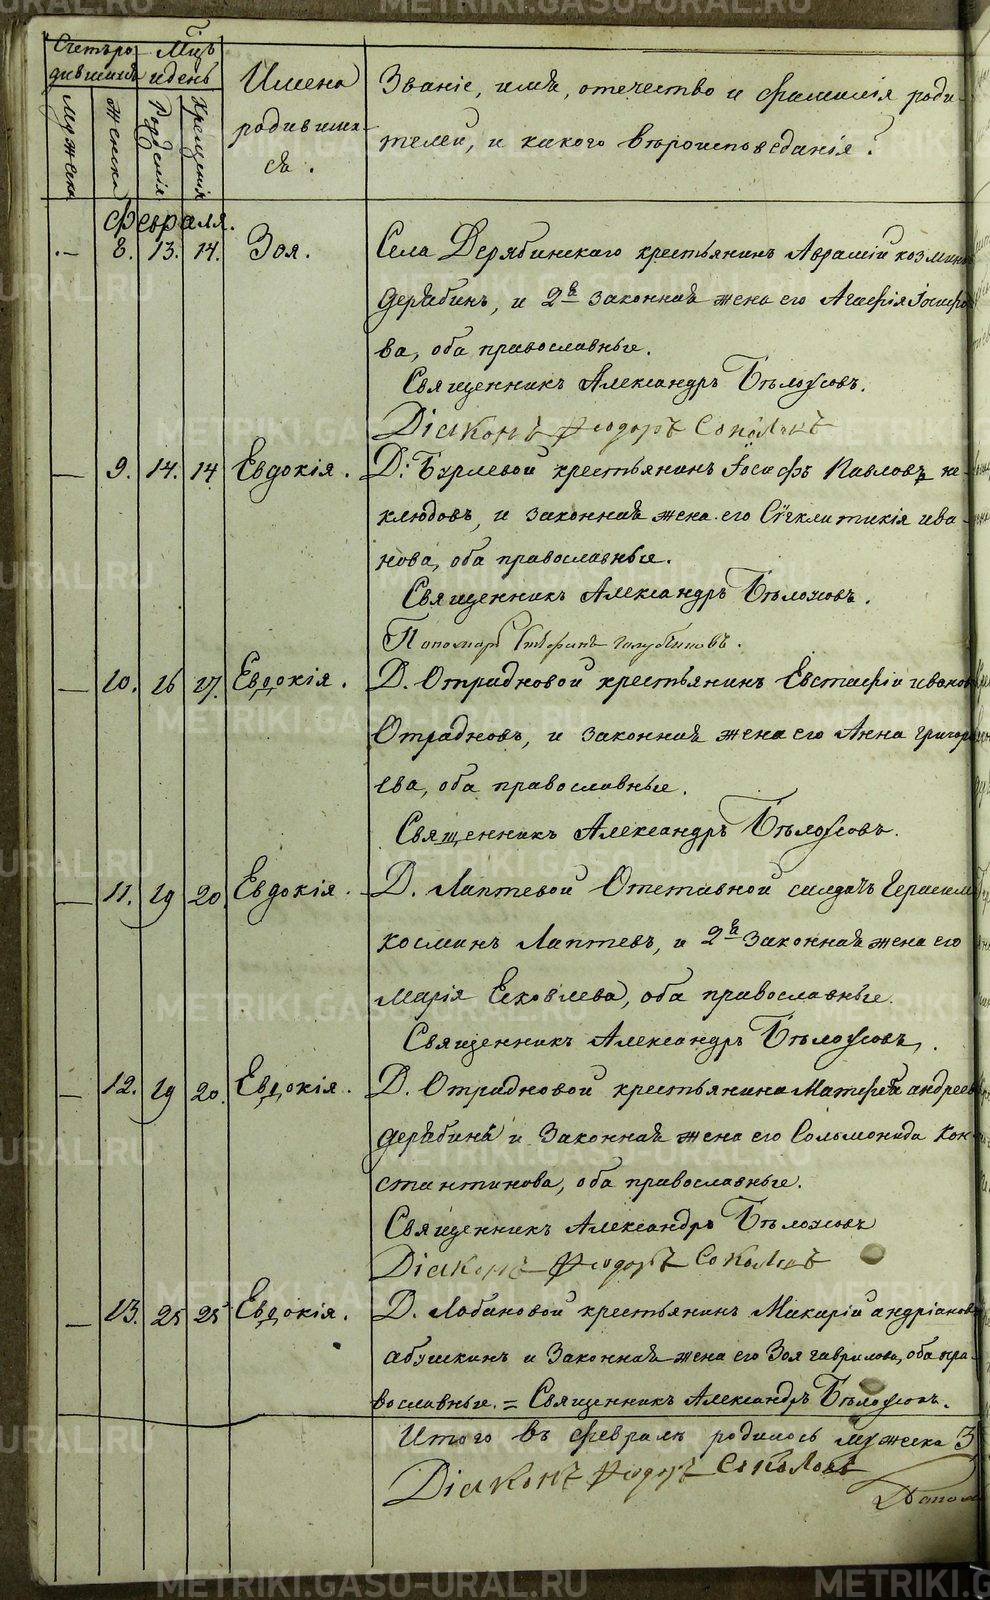 Счетъ ро
дившихся
Мѣць
и день
Мужеска
Женска
Рожденія
Крещенія
Имена
родивших
ся.
Званіе, имя, отечество и фамилія роди-
телей, и какого вѣроисповеданія?
Февраля.
8. 13. 14. Зоя. Села Дерябинскаго крестьянинъ Аврамій козминъ
дерябинъ, и 2я законная жена его Агафія Іосифо
ва, оба православные.
Священникъ Александръ Бѣлоусовъ.
Діаконъ Ѳеодоръ Соколовъ
9. 14. 14 Евдокія. Д: Бурлевой крестьянинъ Іосифъ Павловъ не-
клюдовъ, и законная жена его Сѵгклитикія ива-
нова, оба православные.
Священникъ Александръ Бѣлоусовъ.
Пономарь
10. 16 17. Евдокія. Д. Отрадновой крестьянинъ Евстафій иванов
Отрадновъ, и законная жена его Анна григорь
ева, оба православные.
Священникъ Александръ Бѣлоусовъ.
11. 19 20. Евдокія. Д. Лаптевой Отставной салдатъ Герасим
косминъ Лаптевъ, и 2я законная жена его
Марія Ековлева, оба православные.
Священникъ Александръ Бѣлоусовъ.
12. 19 20. Евдокія. Д. Отрадновой крестьянина Матфей андреев
дерябинъ и Законная жена его Сольмонида Кон
стантинова, оба православные.
Священникъ Александръ Бѣлоусовъ
Діаконъ Ѳеодоръ Соколовъ
13. 25 25 Евдокія. Д. Лобановой крестьянинъ Макарій андріановъ
абушкинъ и Законная жена его Зоя гаврилова, оба пра
вославные. = Священникъ Александръ Бѣлоусовъ.
Итого въ февралѣ родилось мужеска 3
Діаконъ Ѳеодоръ Соколовъ
Поном
METRIKI.GASO-URAL.RU